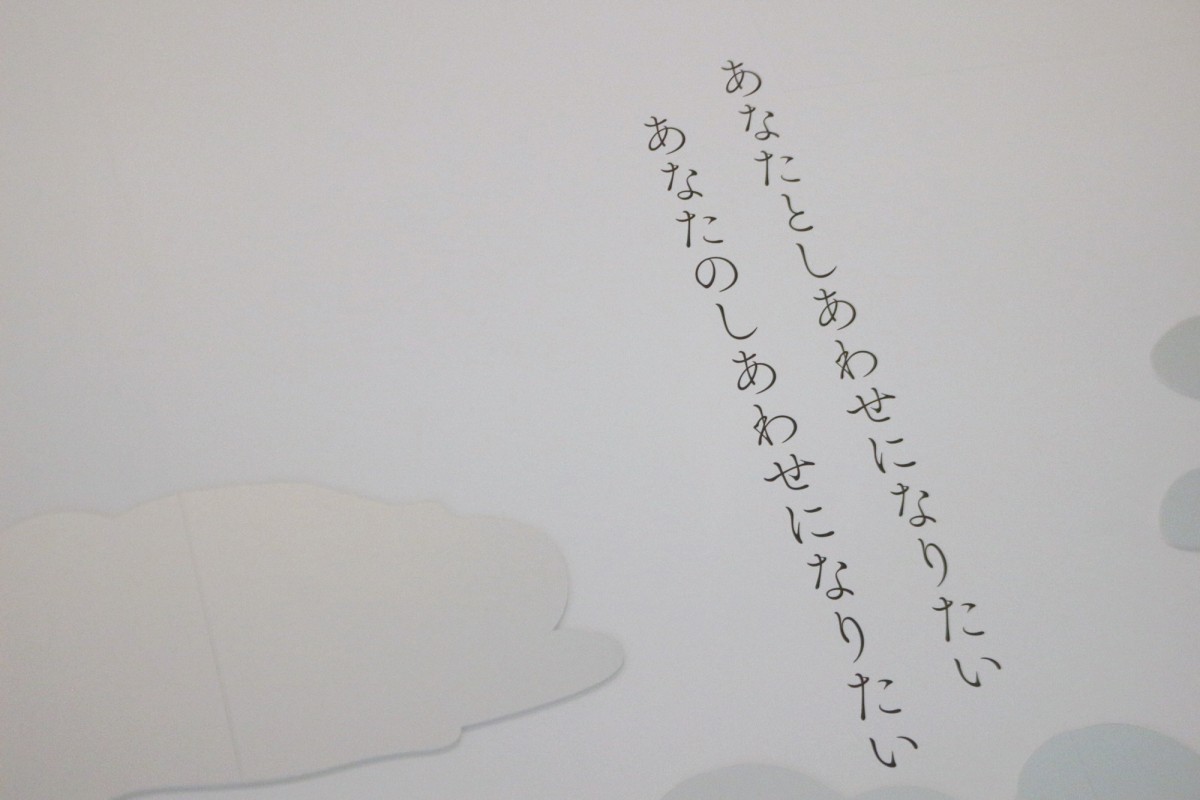 あなたとしあわせになりたい
あなたのしあわせになりたい